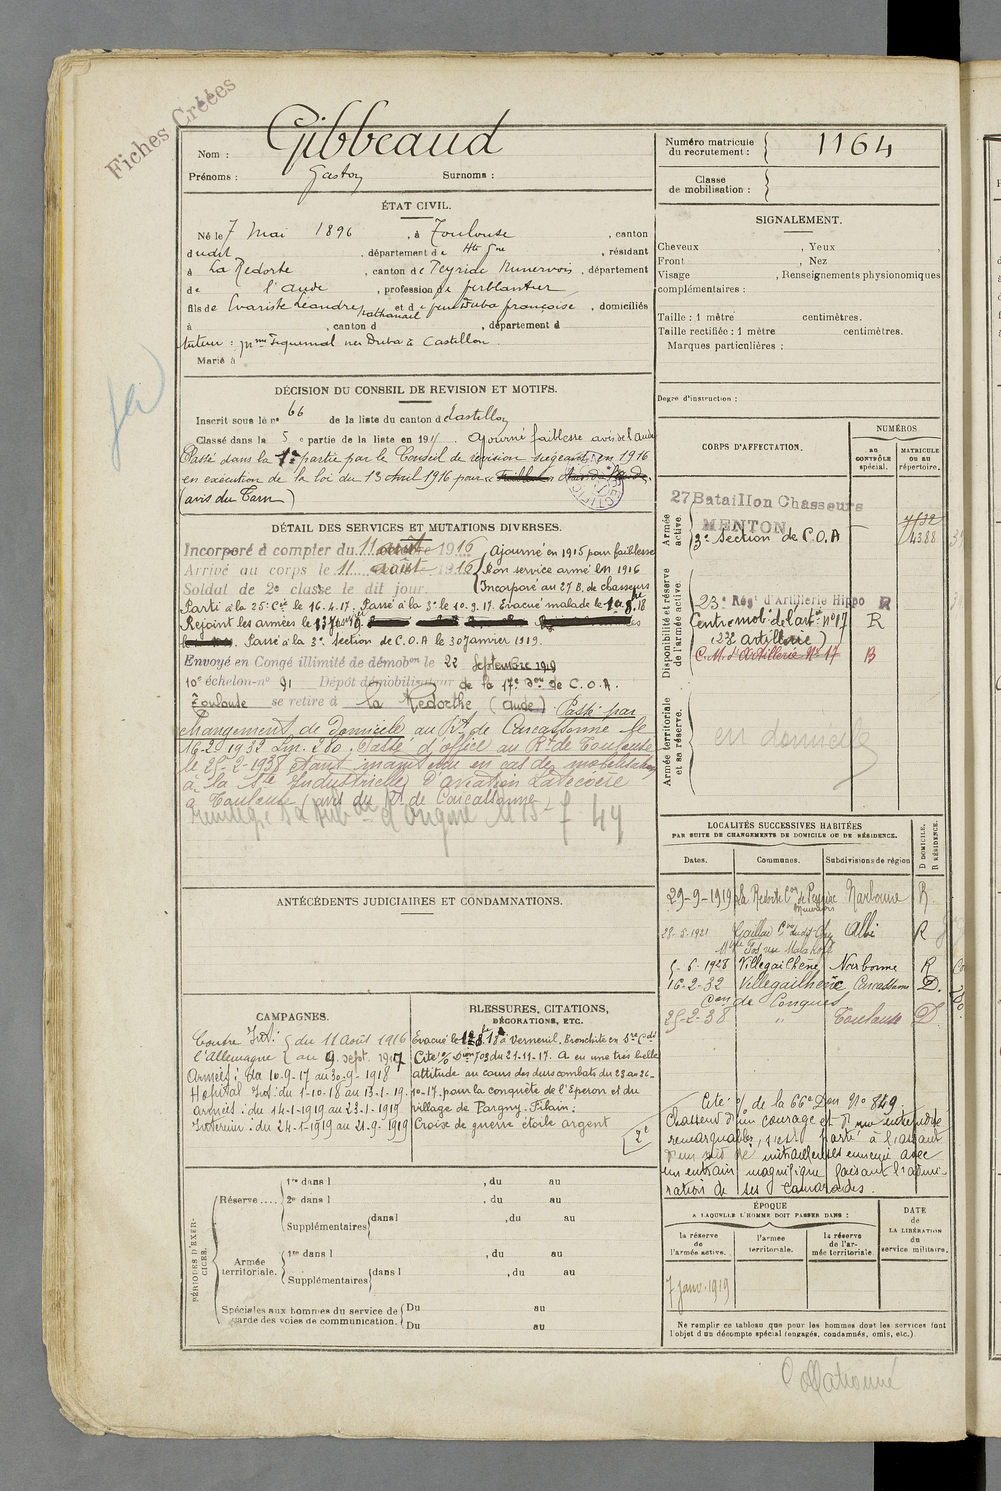 Fiches Créées
Nom : Gibbeaud
Prénoms : Gaston Surnoms :
Numéro matricule du recrutement : 1164
Classe de mobilisation :
ÉTAT CIVIL.
Né le 7 Mai 1896, à Toulouse, canton
dudit, département de Hte Gne, résidant
à La Redorte, canton de Peyriac Minervois, département
de l'Aude, profession de ferblantier
fils de Evariste Léandre Nathanaël et de feue Duba françoise, domiciliés
à , canton d , département d
tuteur : née Duba à Castillon
Marié à
SIGNALEMENT.
Cheveux , Yeux ,
Front , Nez
Visage , Renseignements physionomiques
complémentaires :
Taille : 1 mètre centimètres.
Taille rectifiée : 1 mètre centimètres.
Marques particulières :
Degré d'instruction :
DÉCISION DU CONSEIL DE REVISION ET MOTIFS.
Inscrit sous le n° 66 de la liste du canton de Castillon
Classé dans la 5e partie de la liste en 191 . Ajourné faiblesse avis de l'Aude
Passé dans la 1re partie par le Conseil de revision siegeant en 1916
en exécution de la loi du 13 Avril 1916 pour
(avis du Tarn)
DÉTAIL DES SERVICES ET MUTATIONS DIVERSES.
Incorporé à compter du 11 août 1916 Ajourné en 1915 pour faiblesse
Arrivé au corps le 11 août 1916 Bon service armé en 1916
Soldat de 2e classe le dit jour. Incorporé au 27 B. de chasseurs
Parti à la 25e Cie le 16.4.17. Passé à la 3e le 10.9.17. Evacué malade le 1er 8.18
Rejoint les armées le
Passé à la 3e Section de C.O.A le 30 janvier 1919.
Envoyé en Congé illimité de démobon le 22 septembre 1919
10e échelon-n° 91 Dépôt démobilisateur de la 17e Son de C.O.A.
Toulouse se retire à la Redorthe (Aude). Passé par
changement de Domicile au Rt de Carcassonne le
16-2-1932 Lm. 280. Passé d'office au Rt de Toulouse
le 25-2-1938 étant maintenu en cas de mobilisation
à la Sté Industrielle d'aviation Latécoère
à Toulouse (avis du Rt de Carcassonne)
d'origine
CORPS D'AFFECTATION.
NUMÉROS
AU CONTRÔLE spécial.
MATRICULE OU AU répertoire.
Armée active.
27 Bataillon Chasseurs
MENTON 7532
3e Section de C.O.A 4388
Disponibilité et réserve de l'armée active.
23e Régt d'Artillerie Hippo R
Centre mob de l'art n°17 R
(23e artillerie)
C.M. d'Artillerie N° 17 R
Armée territoriale et sa réserve.
en domicile
LOCALITÉS SUCCESSIVES HABITÉES
PAR SUITE DE CHANGEMENTS DE DOMICILE OU DE RÉSIDENCE.
Dates. Communes. Subdivisions de région D DOMICILE. R RÉSIDENCE.
29-9-1919 La Redorte Con de Peyriac Minervois Narbonne R
28-5-1921 Gaillac Albi R
5-6-1928 Villegailhenc Narbonne R
16-2-32 Villegailhenc Carcassonne D.
Con de Conques
25-2-38 " Toulouse D
ANTÉCÉDENTS JUDICIAIRES ET CONDAMNATIONS.
CAMPAGNES.
Contre l'Allemagne Int: du 11 août 1916 au 9 sept. 1917
Armées : du 10-9-17 au 30-9-1918
Hopital Int : du 1-10-18 au 13-1-19.
armées : du 14-1-1919 au 23-1-1919
Intérieur : du 24-1-1919 au 21-9-1919
BLESSURES, CITATIONS, DÉCORATIONS, ETC.
Evacué le à Verneuil. Bronchite en Sce Cdé
Cité o/ Dion 703 du 21-11-17. A eu une très belle
attitude au cours des durs combats du 23 au 26-
10-17. pour la conquête de l'Eperon et du
village de Pargny-Filain:
Croix de guerre étoile argent
2e Cité o/ de la 66e Don N° 849.
Chasseur d'un courage et d'une intrépidité
remarquables, s'est porté à l'assaut
d'un nid de mitrailleuses ennemi avec
un entrain magnifique faisant l'admi-
ration de ses camarades.
PÉRIODES D'EXERCICES.
Réserve .... 1re dans l , du au
2e dans l , du au
Supplémentaires dans l , du au
Armée territoriale. 1re dans l , du au
Supplémentaires dans l , du au
Spéciales aux hommes du service de garde des voies de communication. Du au
Du au
ÉPOQUE
A LAQUELLE L'HOMME DOIT PASSER DANS :
la réserve de l'armée active.
l'armée territoriale.
la réserve de l'armée territoriale.
DATE DE LA LIBÉRATION du service militaire.
7 janv. 1919
Ne remplir ce tableau que pour les hommes dont les services font
l'objet d'un décompte spécial (engagés, condamnés, omis, etc.)
Collationné